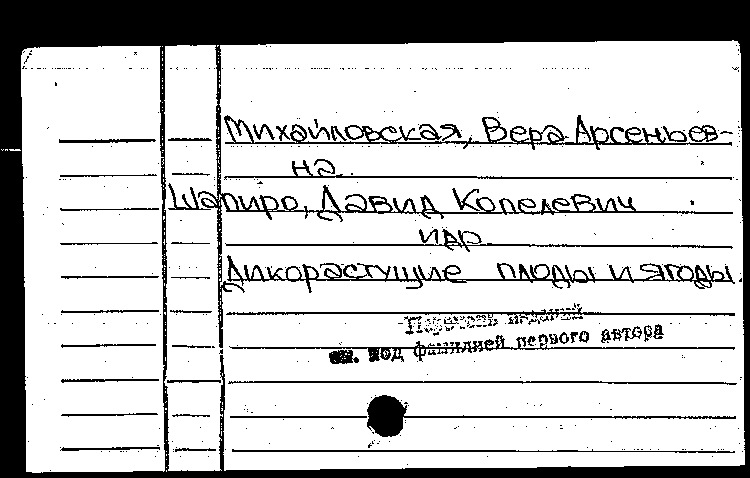 Михайловская, Вера Арсеньев-
на.
Шапиро, Давид Копелевич
и др.
Дикорастущие плоды и ягоды.
Перечень изданий
см. под фамилией первого автора